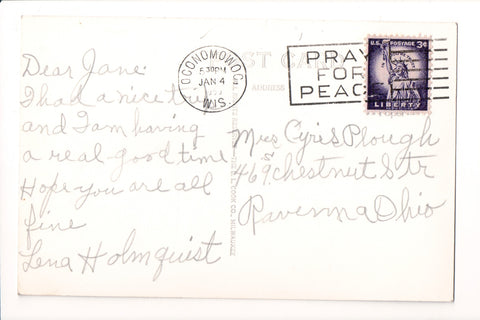 Dear Jane:
I had a nice
and I am having
a real good time
Hope you are all
fine
Lena Holmquist
OCONOMOWOC,
5 30PM
JAN 4
WIS.
POST CARD
ADDRESS
PRAY
FOR
PEACE
U.S. POSTAGE 3¢
LIBERTY
Mrs Cyris Plough
469 1/2 chestnut Str
Ravenna Ohio
COOK CO., MILWAUKEE